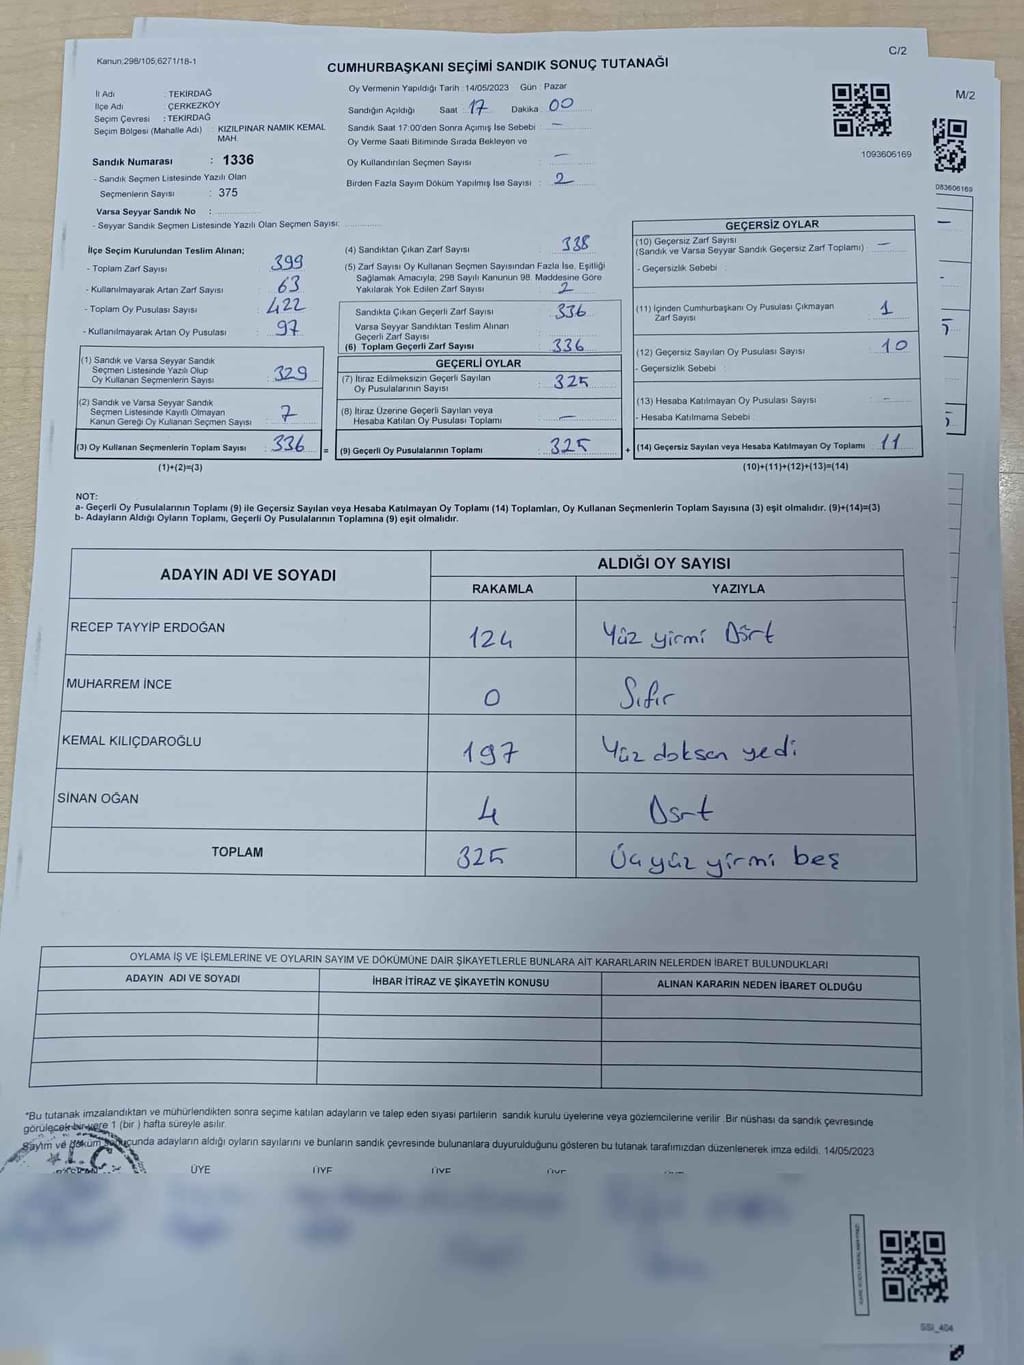 Kanun:298/105,6271/18-1
C/2
CUMHURBAŞKANI SEÇİMİ SANDIK SONUÇ TUTANAĞI
M/2
İl Adı : TEKİRDAĞ
İlçe Adı : ÇERKEZKÖY
Seçim Çevresi : TEKİRDAĞ
Seçim Bölgesi (Mahalle Adı) : KIZILPINAR NAMIK KEMAL
MAH.
Sandık Numarası : 1336
- Sandık Seçmen Listesinde Yazılı Olan
Seçmenlerin Sayısı : 375
Varsa Seyyar Sandık No :
- Seyyar Sandık Seçmen Listesinde Yazılı Olan Seçmen Sayısı:
Oy Vermenin Yapıldığı Tarih :14/05/2023 Gün : Pazar
Sandığın Açıldığı Saat : 17 Dakika : 00
Sandık Saat 17:00'den Sonra Açımış İse Sebebi : —
Oy Verme Saati Bitiminde Sırada Bekleyen ve
Oy Kullandırılan Seçmen Sayısı : —
Birden Fazla Sayım Döküm Yapılmış İse Sayısı : 2
1093606169
083606169
İlçe Seçim Kurulundan Teslim Alınan;
- Toplam Zarf Sayısı : 399
- Kullanılmayarak Artan Zarf Sayısı : 63
- Toplam Oy Pusulası Sayısı : 422
- Kullanılmayarak Artan Oy Pusulası : 97
(1) Sandık ve Varsa Seyyar Sandık
Seçmen Listesinde Yazılı Olup
Oy Kullanan Seçmenlerin Sayısı : 329
(2) Sandık ve Varsa Seyyar Sandık
Seçmen Listesinde Kayıtlı Olmayan
Kanun Gereği Oy Kullanan Seçmen Sayısı : 7
(3) Oy Kullanan Seçmenlerin Toplam Sayısı : 336
(1)+(2)=(3)
(4) Sandıktan Çıkan Zarf Sayısı : 338
(5) Zarf Sayısı Oy Kullanan Seçmen Sayısından Fazla İse, Eşitliği
Sağlamak Amacıyla; 298 Sayılı Kanunun 98. Maddesine Göre
Yakılarak Yok Edilen Zarf Sayısı : 2
Sandıkta Çıkan Geçerli Zarf Sayısı : 336
Varsa Seyyar Sandıktan Teslim Alınan
Geçerli Zarf Sayısı :
(6) Toplam Geçerli Zarf Sayısı : 336
GEÇERLİ OYLAR
(7) İtiraz Edilmeksizin Geçerli Sayılan
Oy Pusulalarının Sayısı : 325
(8) İtiraz Üzerine Geçerli Sayılan veya
Hesaba Katılan Oy Pusulası Toplamı : —
= (9) Geçerli Oy Pusulalarının Toplamı : 325
GEÇERSİZ OYLAR
(10) Geçersiz Zarf Sayısı
(Sandık ve Varsa Seyyar Sandık Geçersiz Zarf Toplamı) : —
- Geçersizlik Sebebi :
(11) İçinden Cumhurbaşkanı Oy Pusulası Çıkmayan
Zarf Sayısı : 1
(12) Geçersiz Sayılan Oy Pusulası Sayısı : 10
- Geçersizlik Sebebi :
(13) Hesaba Katılmayan Oy Pusulası Sayısı : -
- Hesaba Katılmama Sebebi :
+ (14) Geçersiz Sayılan veya Hesaba Katılmayan Oy Toplamı : 11
(10)+(11)+(12)+(13)=(14)
NOT:
a- Geçerli Oy Pusulalarının Toplamı (9) ile Geçersiz Sayılan veya Hesaba Katılmayan Oy Toplamı (14) Toplamları, Oy Kullanan Seçmenlerin Toplam Sayısına (3) eşit olmalıdır. (9)+(14)=(3)
b- Adayların Aldığı Oyların Toplamı, Geçerli Oy Pusulalarının Toplamına (9) eşit olmalıdır.
ADAYIN ADI VE SOYADI
ALDIĞI OY SAYISI
RAKAMLA YAZIYLA
RECEP TAYYİP ERDOĞAN 124 Yüz yirmi Dört
MUHARREM İNCE 0 Sıfır
KEMAL KILIÇDAROĞLU 197 Yüz doksan yedi
SİNAN OĞAN 4 Dört
TOPLAM 325 Üçyüz yirmi beş
OYLAMA İŞ VE İŞLEMLERİNE VE OYLARIN SAYIM VE DÖKÜMÜNE DAİR ŞİKAYETLERLE BUNLARA AİT KARARLARIN NELERDEN İBARET BULUNDUKLARI
ADAYIN ADI VE SOYADI İHBAR İTİRAZ VE ŞİKAYETİN KONUSU ALINAN KARARIN NEDEN İBARET OLDUĞU
*Bu tutanak imzalandıktan ve mühürlendikten sonra seçime katılan adayların ve talep eden siyasi partilerin sandık kurulu üyelerine veya gözlemcilerine verilir. Bir nüshası da sandık çevresinde
görülecek bir yere 1 (bir ) hafta süreyle asılır.
Sayım ve döküm sonucunda adayların aldığı oyların sayılarını ve bunların sandık çevresinde bulunanlara duyurulduğunu gösteren bu tutanak tarafımızdan düzenlenerek imza edildi. 14/05/2023
T.C.
ÜYE ÜYE ÜYE ÜYE ÜYE
SSI_404